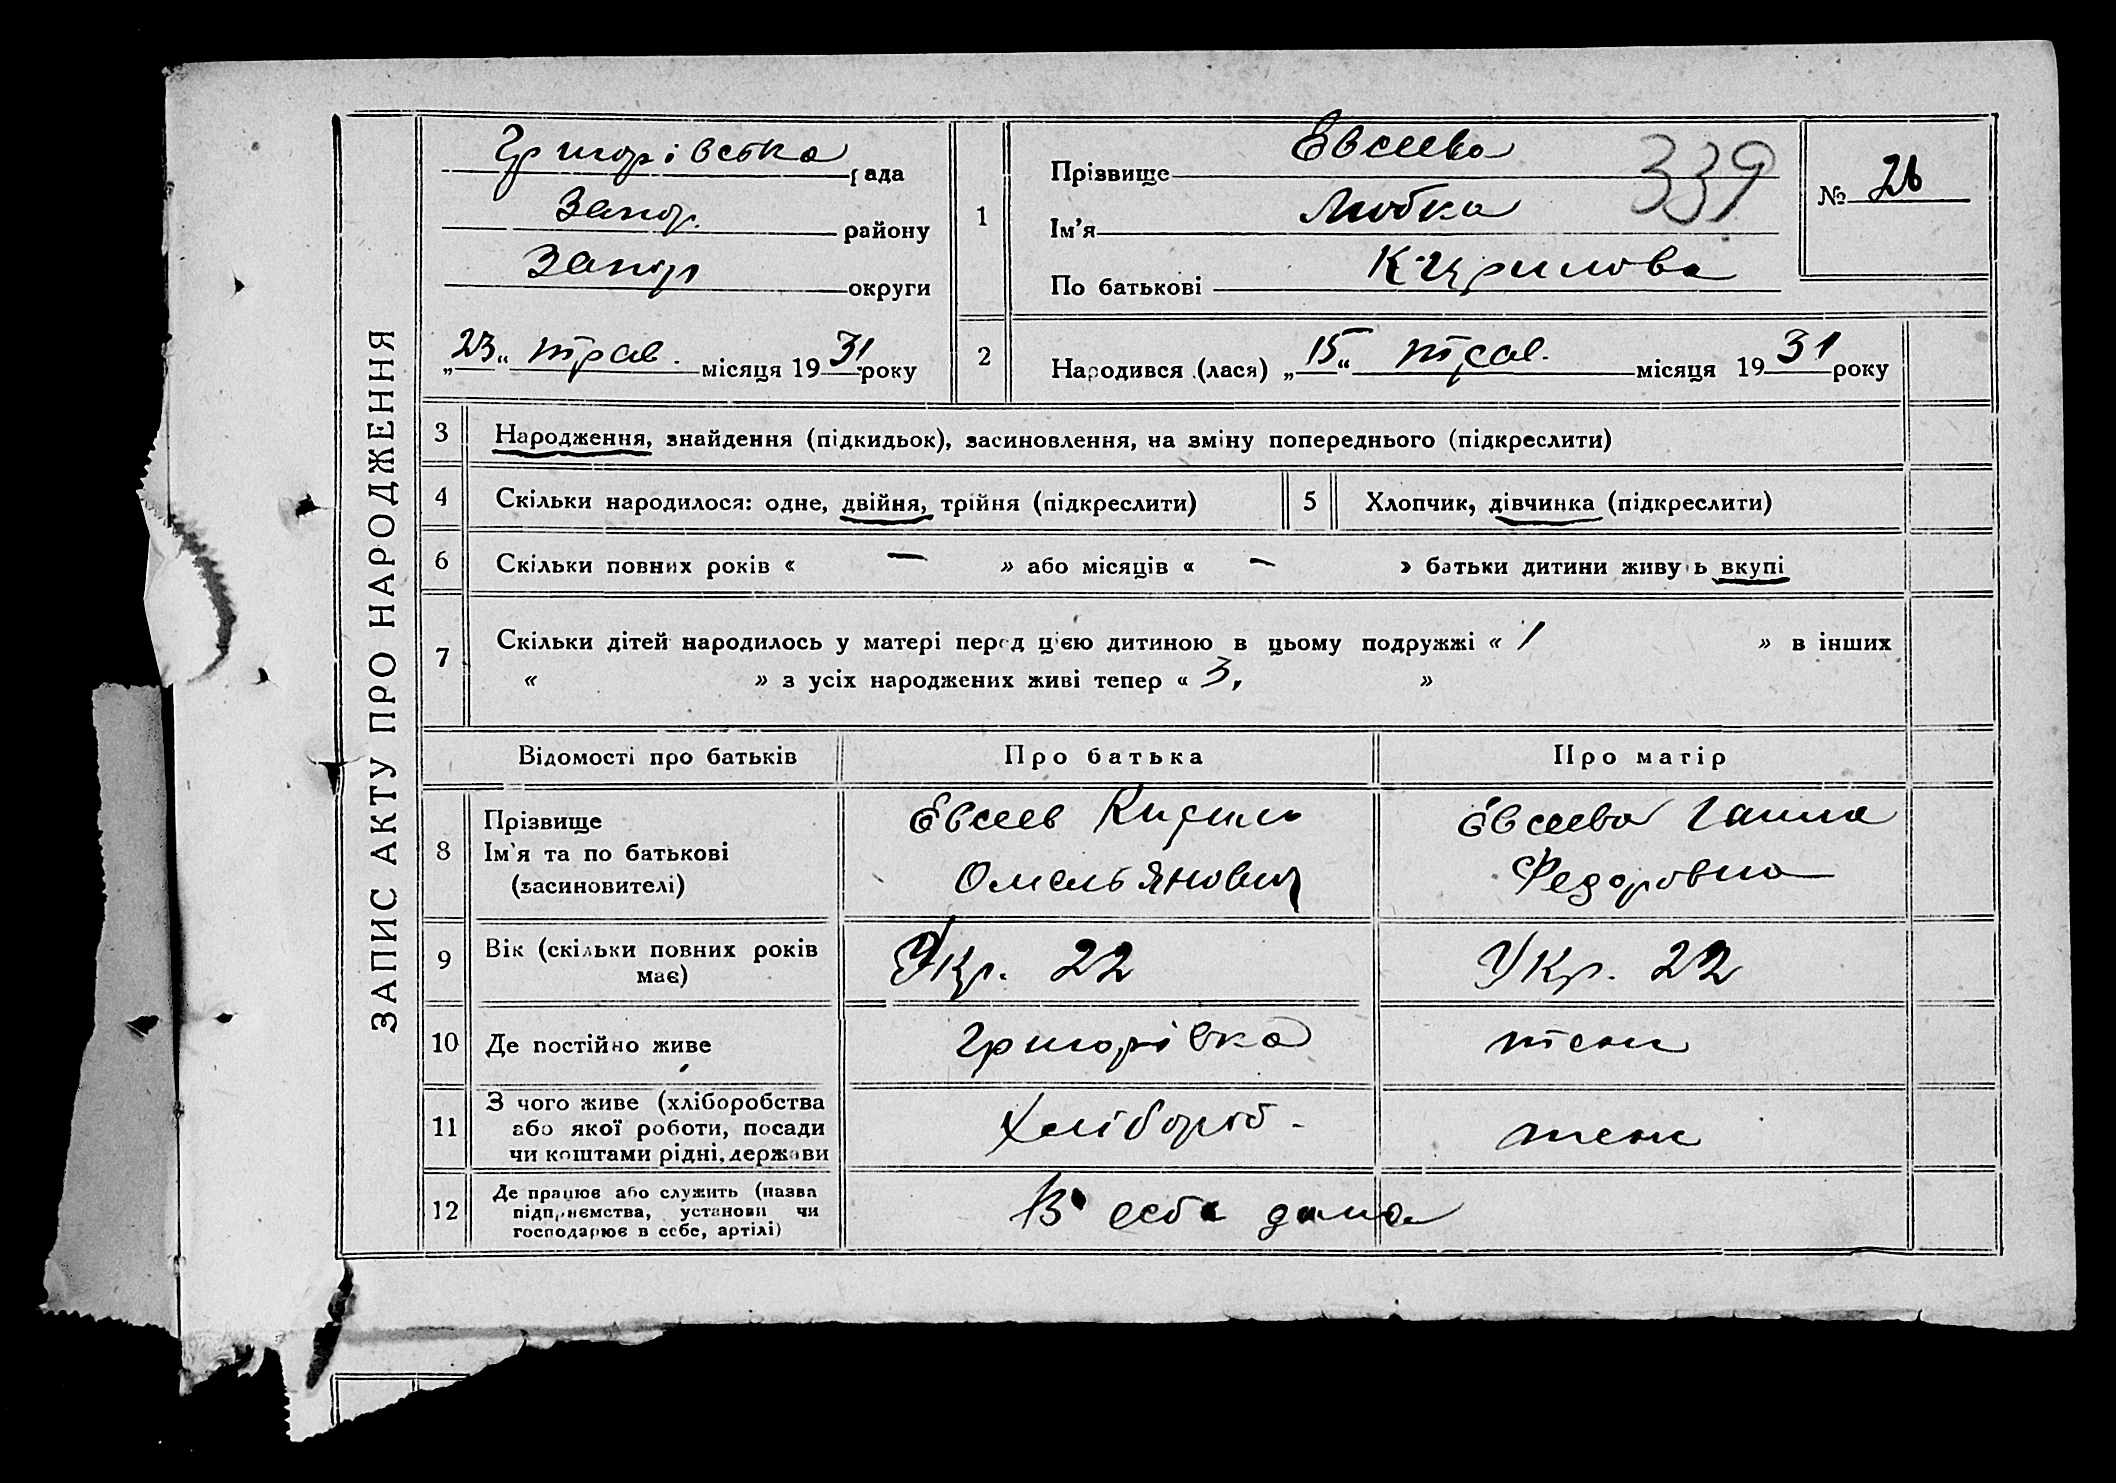 ЗАПИС АКТУ ПРО НАРОДЖЕННЯ
Григорівська рада
Запор. району
Запор округи
„23“ трав. місяця 1931 року
1
Прізвище Евсеева
339
Ім'я Любка
По батькові Кирилова
№ 26
2
Народився (лася) „15“ трав. місяця 1931 року
3 Народження, знайдення (підкидьок), засиновлення, на зміну попереднього (підкреслити)
4 Скільки народилося: одне, двійня, трійня (підкреслити)
5 Хлопчик, дівчинка (підкреслити)
6 Скільки повних років « — » або місяців « — » батьки дитини живуь вкупі
7 Скільки дітей народилось у матері перед цією дитиною в цьому подружжі « 1 » в інших
« » з усіх народжених живі тепер « 3, »
Відомості про батьків Про батька Про матір
8 Прізвище
Ім'я та по батькові
(засиновителі)
Евсеев Кирило
Омельянович
Евсеева Ганна
Федоровна
9 Вік (скільки повних років
має)
Укр. 22
Укр. 22
10 Де постійно живе
Григорівка
теж
11 З чого живе (хліборобства
або якої роботи, посади
чи коштами рідні, держави
Хлібороб.
теж
12 Де працює або служить (назва
підприємства, установи чи
господарює в себе, артілі)
В себе дома